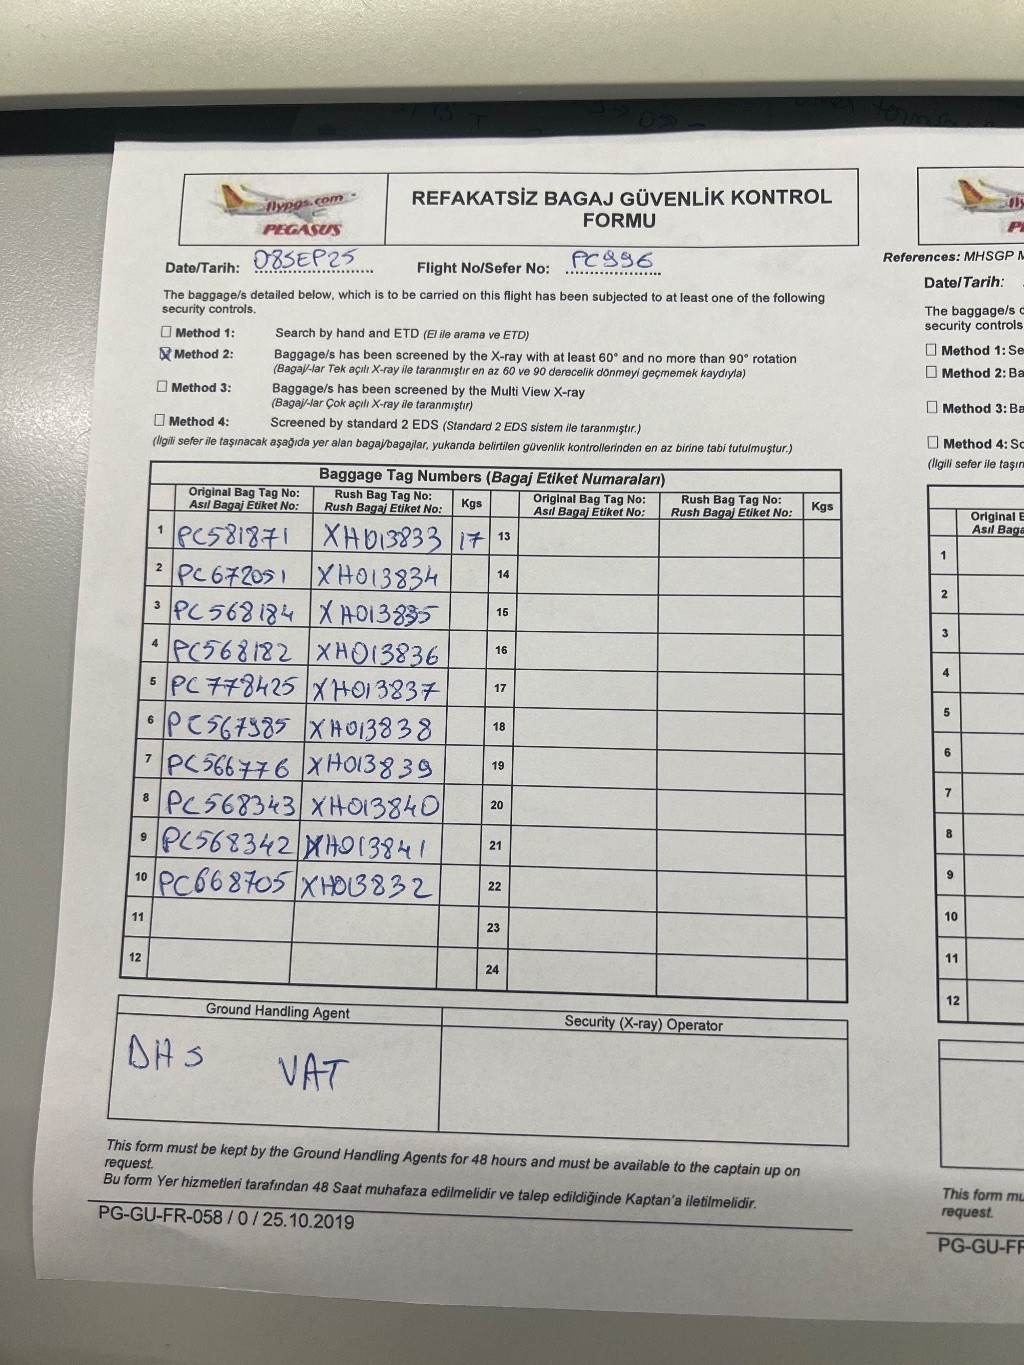 flypgs.com
PEGASUS
REFAKATSİZ BAGAJ GÜVENLİK KONTROL
FORMU
Date/Tarih: 08SEP25 Flight No/Sefer No: PC996
The baggage/s detailed below, which is to be carried on this flight has been subjected to at least one of the following
security controls.
☐ Method 1: Search by hand and ETD (El ile arama ve ETD)
☒ Method 2: Baggage/s has been screened by the X-ray with at least 60° and no more than 90° rotation
(Bagaj/-lar Tek açılı X-ray ile taranmıştır en az 60 ve 90 derecelik dönmeyi geçmemek kaydıyla)
☐ Method 3: Baggage/s has been screened by the Multi View X-ray
(Bagaj/-lar Çok açılı X-ray ile taranmıştır)
☐ Method 4: Screened by standard 2 EDS (Standard 2 EDS sistem ile taranmıştır.)
(İlgili sefer ile taşınacak aşağıda yer alan bagaj/bagajlar, yukarıda belirtilen güvenlik kontrollerinden en az birine tabi tutulmuştur.)
Baggage Tag Numbers (Bagaj Etiket Numaraları)
Original Bag Tag No: Rush Bag Tag No: Kgs Original Bag Tag No: Rush Bag Tag No: Kgs
Asıl Bagaj Etiket No: Rush Bagaj Etiket No: Asıl Bagaj Etiket No: Rush Bagaj Etiket No:
1 PC581871 XH013833 17 13
2 PC672051 XH013834 14
3 PC568184 XH013835 15
4 PC568182 XH013836 16
5 PC778425 XH013837 17
6 PC567985 XH013838 18
7 PC566776 XH013839 19
8 PC568343 XH013840 20
9 PC568342 XH013841 21
10 PC668705 XH013832 22
11 23
12 24
Ground Handling Agent Security (X-ray) Operator
DHS VAT
This form must be kept by the Ground Handling Agents for 48 hours and must be available to the captain up on
request.
Bu form Yer hizmetleri tarafından 48 Saat muhafaza edilmelidir ve talep edildiğinde Kaptan'a iletilmelidir.
PG-GU-FR-058 / 0 / 25.10.2019
References: MHSGP
Date/Tarih:
The baggage/s
security controls
☐ Method 1:
☐ Method 2:
☐ Method 3:
☐ Method 4:
(İlgili sefer ile
Original
Asıl
1
2
3
4
5
6
7
8
9
10
11
12
This form
request.
PG-GU-